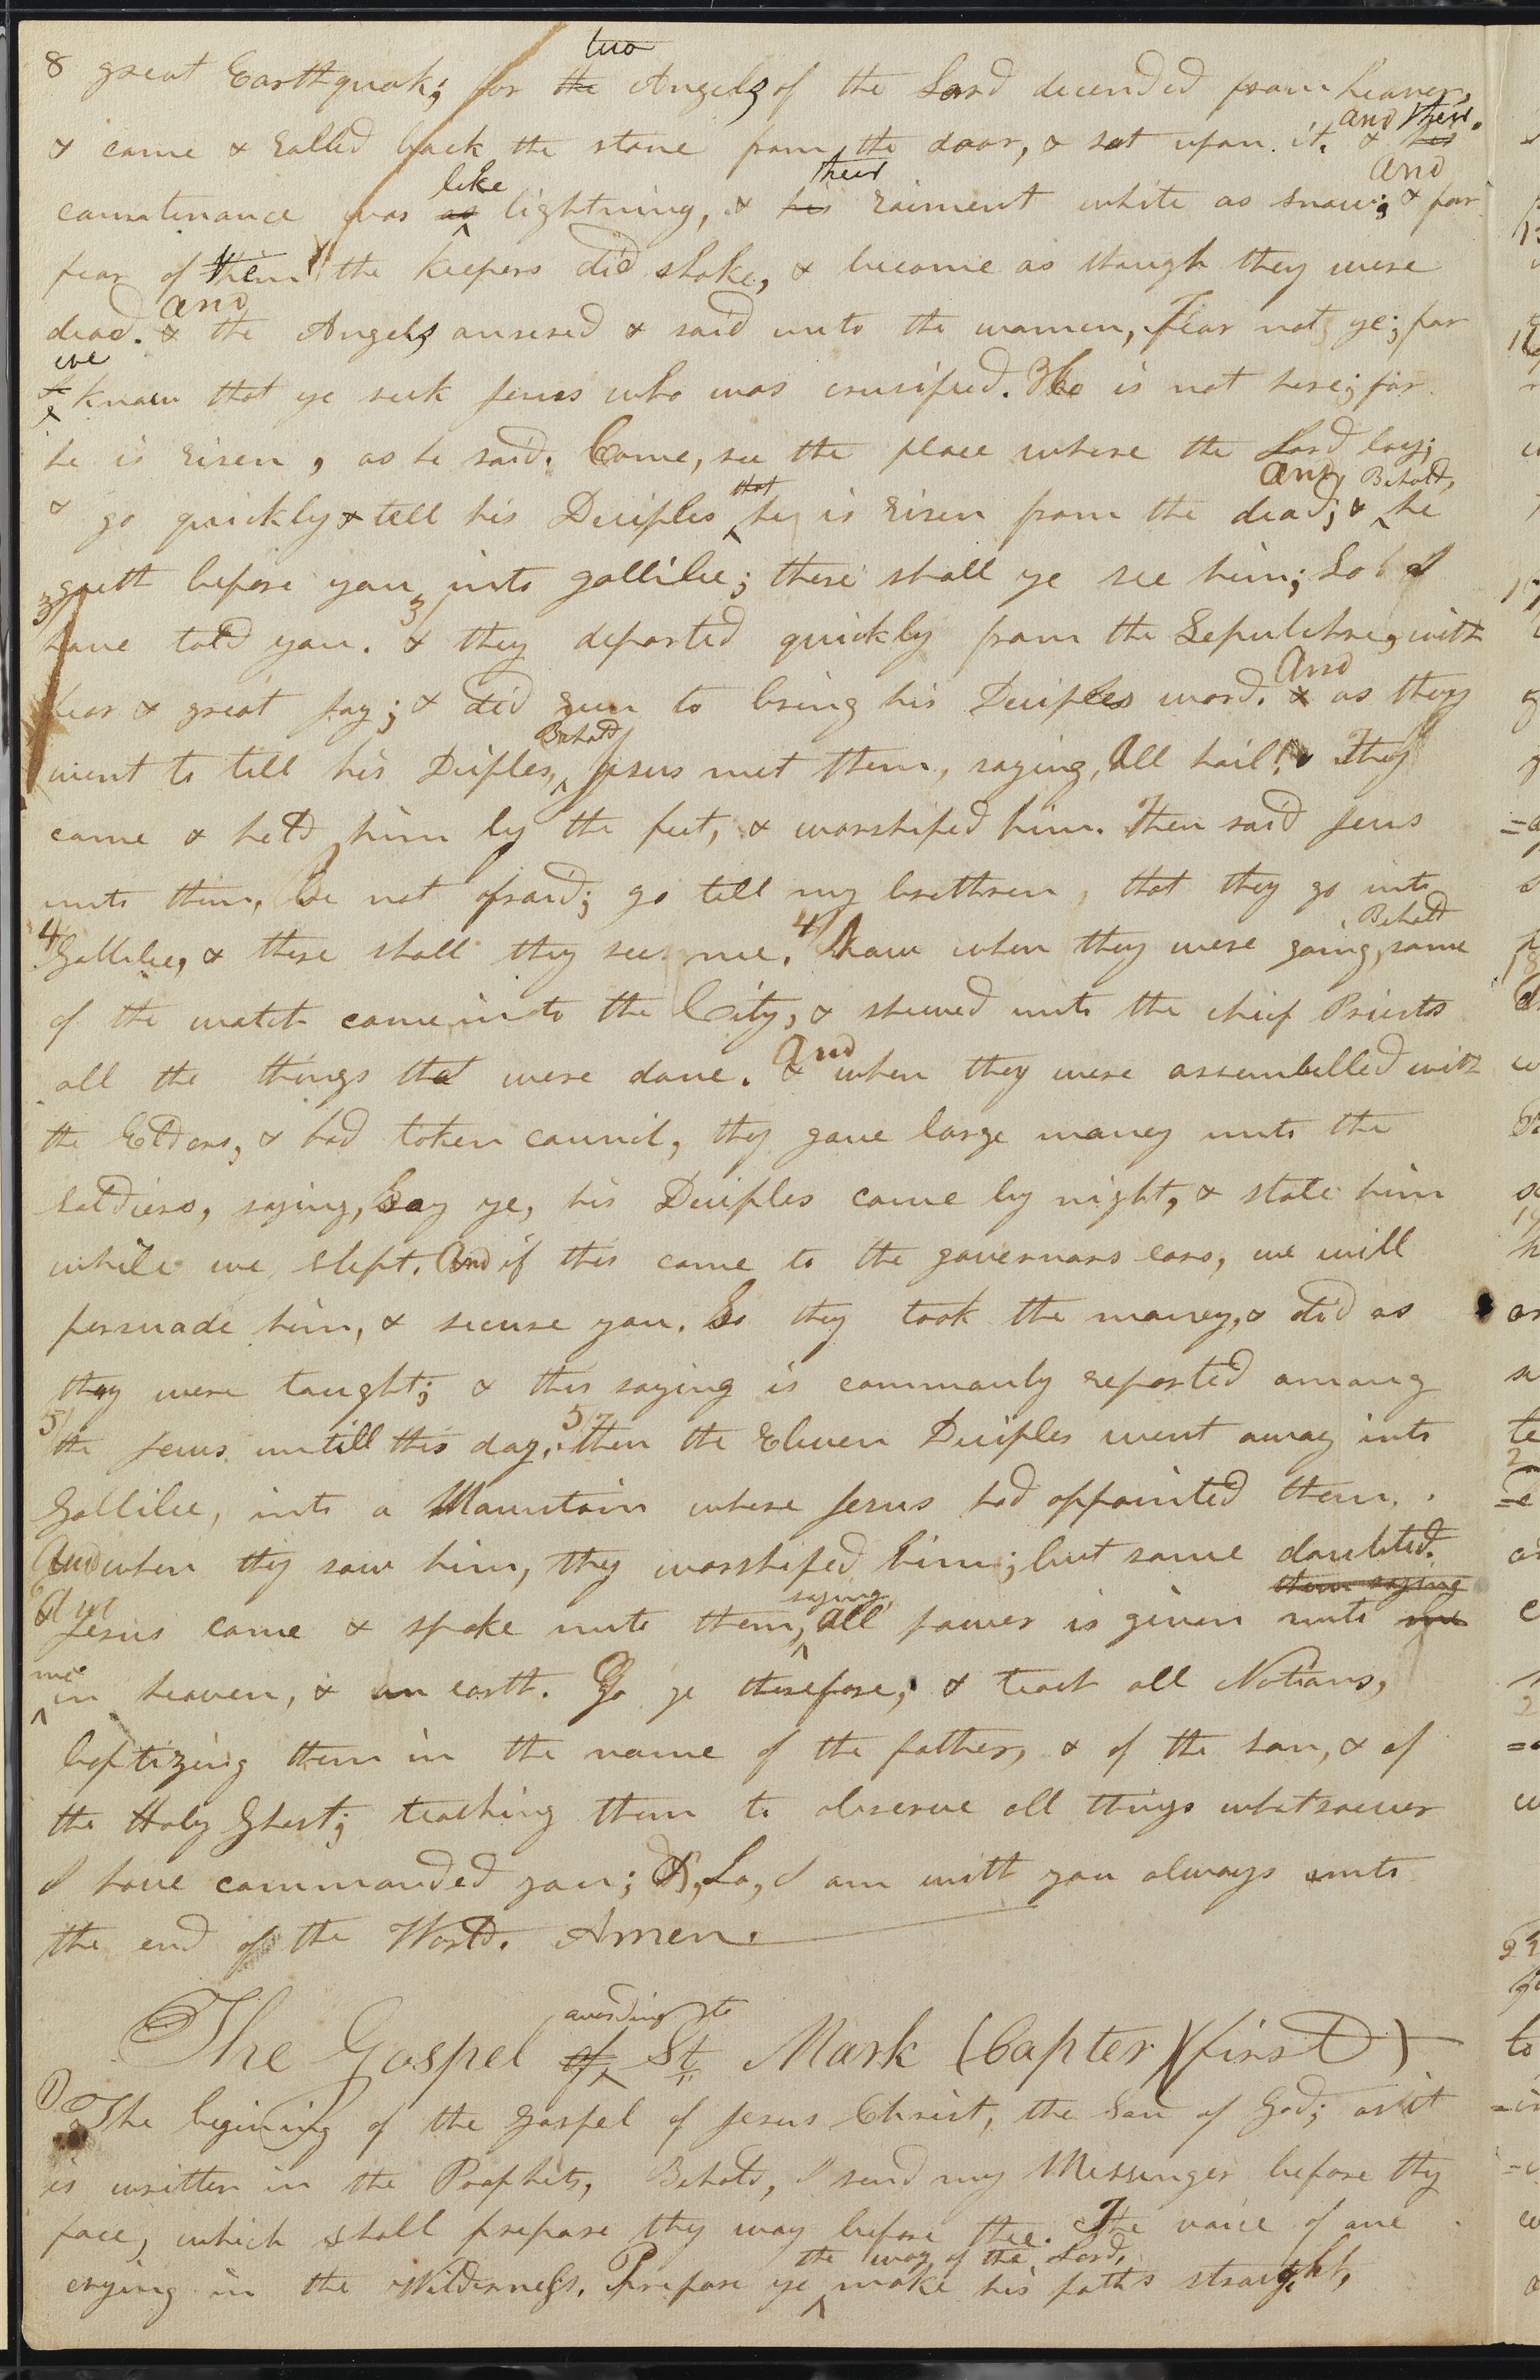 8 great Earthquak; for the two Angels of the Lord decended from heaven,
& came & rolled back the stone from the door, & sat upon it. & his and their
countinance was as like lightning, & his their raiment white as snow; & and for
fear of them the keepers did shake, & become as though they were
dead. & and the Angels ansered & said unto the women, Fear not ye; for
we know that ye seek Jesus who was crusified. He is not here; for
he is risen, as he said. Come, see the place where the Lord lay;
& go quickly & tell his Deciples that he is risen from the dead; & and, Behold, he
3 goeth before you into gallilee; there shall ye see him; Lo I
have told you. 3 & they departed quickly from the Sepulchre, with
fear & great joy; & did run to bring his Deciples word. & and as they
went to tell his Diciples, Behold Jesus met them, saying, All hail! They
came & held him by the feet, & worshiped him. Then said Jesus
unto them, Be not afraid; go tell my brethren, that they go into
4 Gallilee, & there shall they see me. 4 Now when they were going, Behold some
of the watch came into the City, & shewed unto the chief Priests
all the things that were done. & and when they were assembelled with
the Elders, & had taken council, they gave large money unto the
Soldiers, saying, Say ye, his Deciples came by night, & stole him
while we slept. And if this come to the governors ears, we will
persuade him, & secure you. So they took the money, & did as
they were taught; & this saying is commonly reported among
5 the Jews untill this day. 5 then the Eleven Deciples went away into
Gallilee, into a Mountain where Jesus had appointed them.
And when they saw him, they worshiped him; but some doubted.
6 And Jesus came & spoke unto them, saying, All power is given unto me them saying
me in heaven, & on earth. Go ye therefore, & teach all Nations,
baptizing them in the name of the father, & of the Son, & of
the Holy Ghost; teaching them to observe all things whatsoever
I have commanded you; &, Lo, I am with you always unto
the end of the World. Amen.
The Gospel of according to St Mark (Capter)(first)
1 The begining of the gospel of Jesus Christ, the Son of God; as it
is written in the Prophets, Behold, I send my Messenger before thy
face, which shall prepare thy way before thee. The voice of one
crying in the Wilderness, Prepare ye the way of the Lord, make his paths straight,